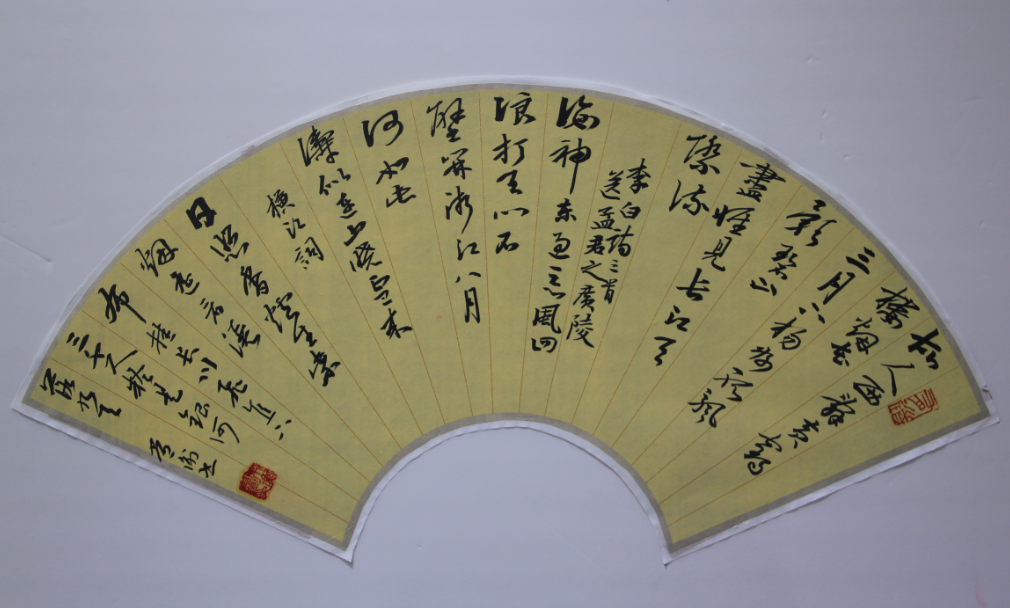 故人西辞黄鹤
楼烟花
三月下扬州孤帆
影碧空
尽唯见长江天
际流
李白诗三首
送孟君之广陵
海神来过恶风回
浪打天门石
壁开浙江八月
何如此
涛似连山喷雪来
横江词
日照香炉生紫
烟遥看瀑
布挂长川飞直下
三千尺疑是银河
落九天